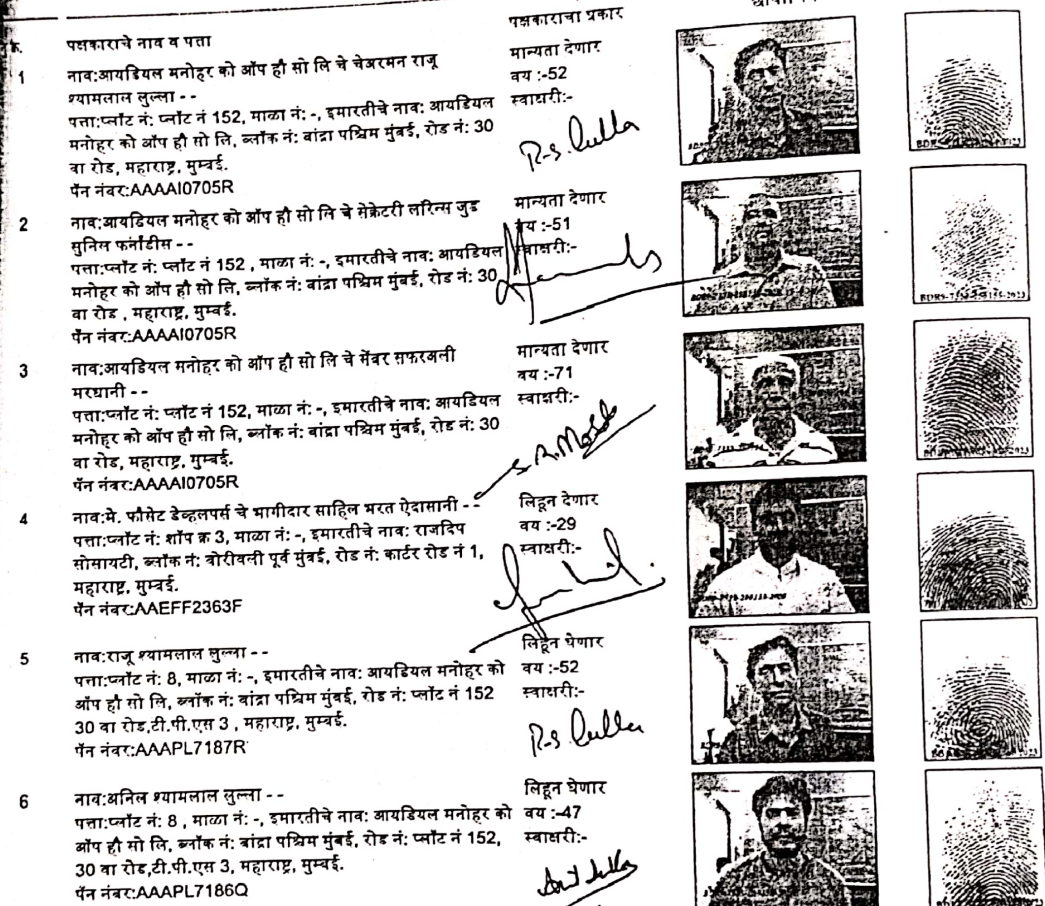 पक्षकाराचा प्रकार
पक्षकाराचे नाव व पत्ता
1
नाव:आयडियल मनोहर को ऑप हौ सो लि चे चेअरमन राजू
श्यामलाल लुल्ला - -
पत्ता:प्लॉट नं: प्लॉट नं 152, माळा नं: -, इमारतीचे नाव: आयडियल
मनोहर को ऑप हौ सो लि, ब्लॉक नं: बांद्रा पश्चिम मुंबई, रोड नं: 30
वा रोड, महाराष्ट्र, मुम्बई.
पॅन नंबर:AAAAI0705R
मान्यता देणार
वय :-52
स्वाक्षरी:-
R.S. Lulla
2
नाव:आयडियल मनोहर को ऑप हौ सो लि चे सेक्रेटरी लरिन्स जुड
सुनिल फर्नांडीस - -
पत्ता:प्लॉट नं: प्लॉट नं 152 , माळा नं: -, इमारतीचे नाव: आयडियल
मनोहर को ऑप हौ सो लि, ब्लॉक नं: बांद्रा पश्चिम मुंबई, रोड नं: 30
वा रोड , महाराष्ट्र, मुम्बई.
पॅन नंबर:AAAAI0705R
मान्यता देणार
वय :-51
स्वाक्षरी:-
3
नाव:आयडियल मनोहर को ऑप हौ सो लि चे मेंबर सफरअली
मरधानी - -
पत्ता:प्लॉट नं: प्लॉट नं 152, माळा नं: -, इमारतीचे नाव: आयडियल
मनोहर को ऑप हौ सो लि, ब्लॉक नं: बांद्रा पश्चिम मुंबई, रोड नं: 30
वा रोड, महाराष्ट्र, मुम्बई.
पॅन नंबर:AAAAI0705R
मान्यता देणार
वय :-71
स्वाक्षरी:-
4
नाव:मे. फौसेट डेव्हलपर्स चे भागीदार साहिल भरत ऐदासानी - -
पत्ता:प्लॉट नं: शॉप क्र 3, माळा नं: -, इमारतीचे नाव: राजदिप
सोसायटी, ब्लॉक नं: बोरीवली पूर्व मुंबई, रोड नं: कार्टर रोड नं 1,
महाराष्ट्र, मुम्बई.
पॅन नंबर:AAEFF2363F
लिहून देणार
वय :-29
स्वाक्षरी:-
5
नाव:राजू श्यामलाल लुल्ला - -
पत्ता:प्लॉट नं: 8, माळा नं: -, इमारतीचे नाव: आयडियल मनोहर को
ऑप हौ सो लि, ब्लॉक नं: बांद्रा पश्चिम मुंबई, रोड नं: प्लॉट नं 152
30 वा रोड,टी.पी.एस 3 , महाराष्ट्र, मुम्बई.
पॅन नंबर:AAAPL7187R
लिहून घेणार
वय :-52
स्वाक्षरी:-
R.S. Lulla
6
नाव:अनिल श्यामलाल लुल्ला - -
पत्ता:प्लॉट नं: 8 , माळा नं: -, इमारतीचे नाव: आयडियल मनोहर को
ऑप हौ सो लि, ब्लॉक नं: बांद्रा पश्चिम मुंबई, रोड नं: प्लॉट नं 152,
30 वा रोड,टी.पी.एस 3, महाराष्ट्र, मुम्बई.
पॅन नंबर:AAAPL7186Q
लिहून घेणार
वय :-47
स्वाक्षरी:-